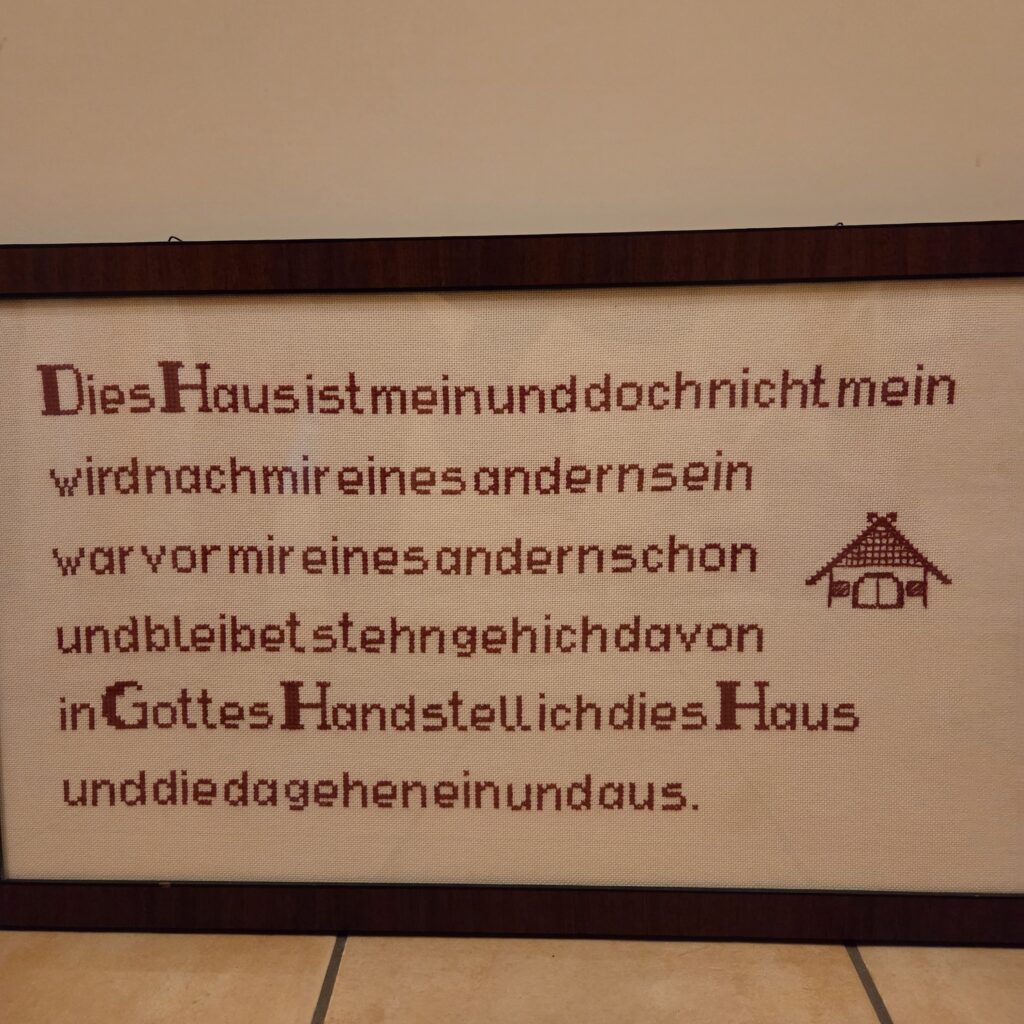 Dies Haus ist mein und doch nicht mein
wird nach mir eines andern sein
war vor mir eines andern schon
und bleibet stehn geh ich davon
in Gottes Hand stell ich dies Haus
und die da gehen ein und aus.